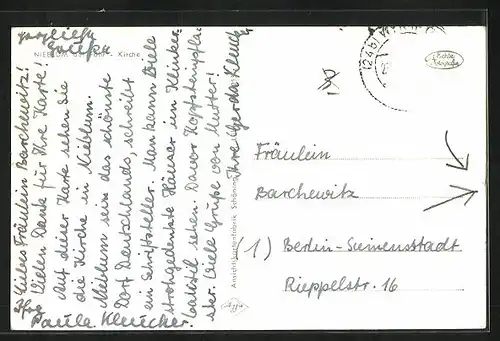 Liebes Fräulein Barchewitz!
Vielen Dank für Ihre Karte!
Auf dieser Karte sehen Sie
die Kirche in Nieblum.
Nieblum sei das schönste
Dorf Deutschlands, schreibt
ein Schriftsteller. Man kann viele
strohgedeckte Häuser im Klinker-
baustil sehen. Davor Kopfsteinpfla-
ster. Viele Grüße von Mutter!
Ihre Gerda Kleuker
Paula Kleucker.
NIEBLUM Kirche
Ansichtskartenfabrik Schöning
Agfa
(1)
Fräulein
Barchewitz
Berlin-Siemensstadt
Rieppelstr. 16